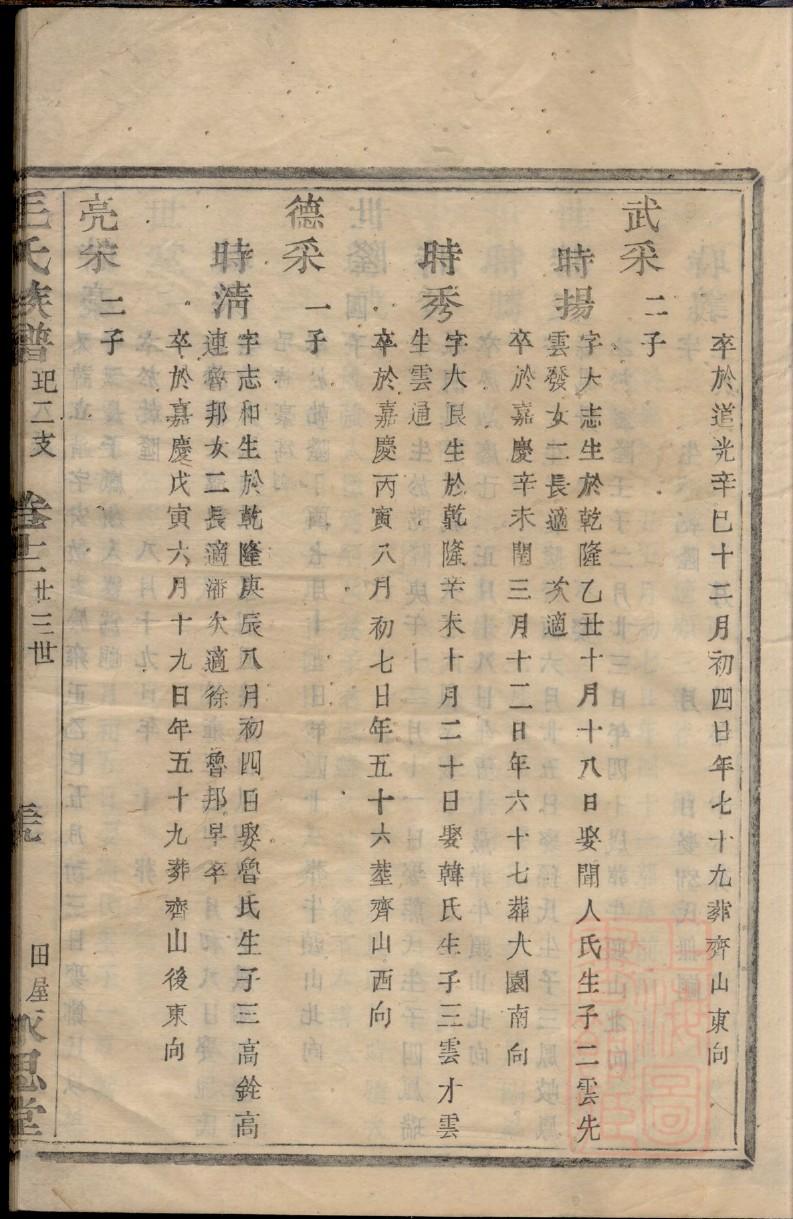 卒於道光辛巳十二月初四日年七十九葬齊山東向
武采二子
時揚字大志生於乾隆乙丑十月十八日娶聞人氏生子二雲先
雲發女二長適 次適
卒於嘉慶辛未閏三月十二日年六十七葬大園南向
時秀字大艮生於乾隆辛未十月二十日娶韓氏生子三雲才雲
生雲通
卒於嘉慶丙寅八月初七日年五十六塟齊山西向
德采一子
時清字志和生於乾隆庚辰八月初四日娶魯氏生子三高銓高
連魯邦女二長適潘次適徐魯邦早卒
卒於嘉慶戊寅六月十九日年五十九葬齊山後東向
亮采二子
毛氏族譜 玘二支 卷十二 廿三世 田屋 永思堂